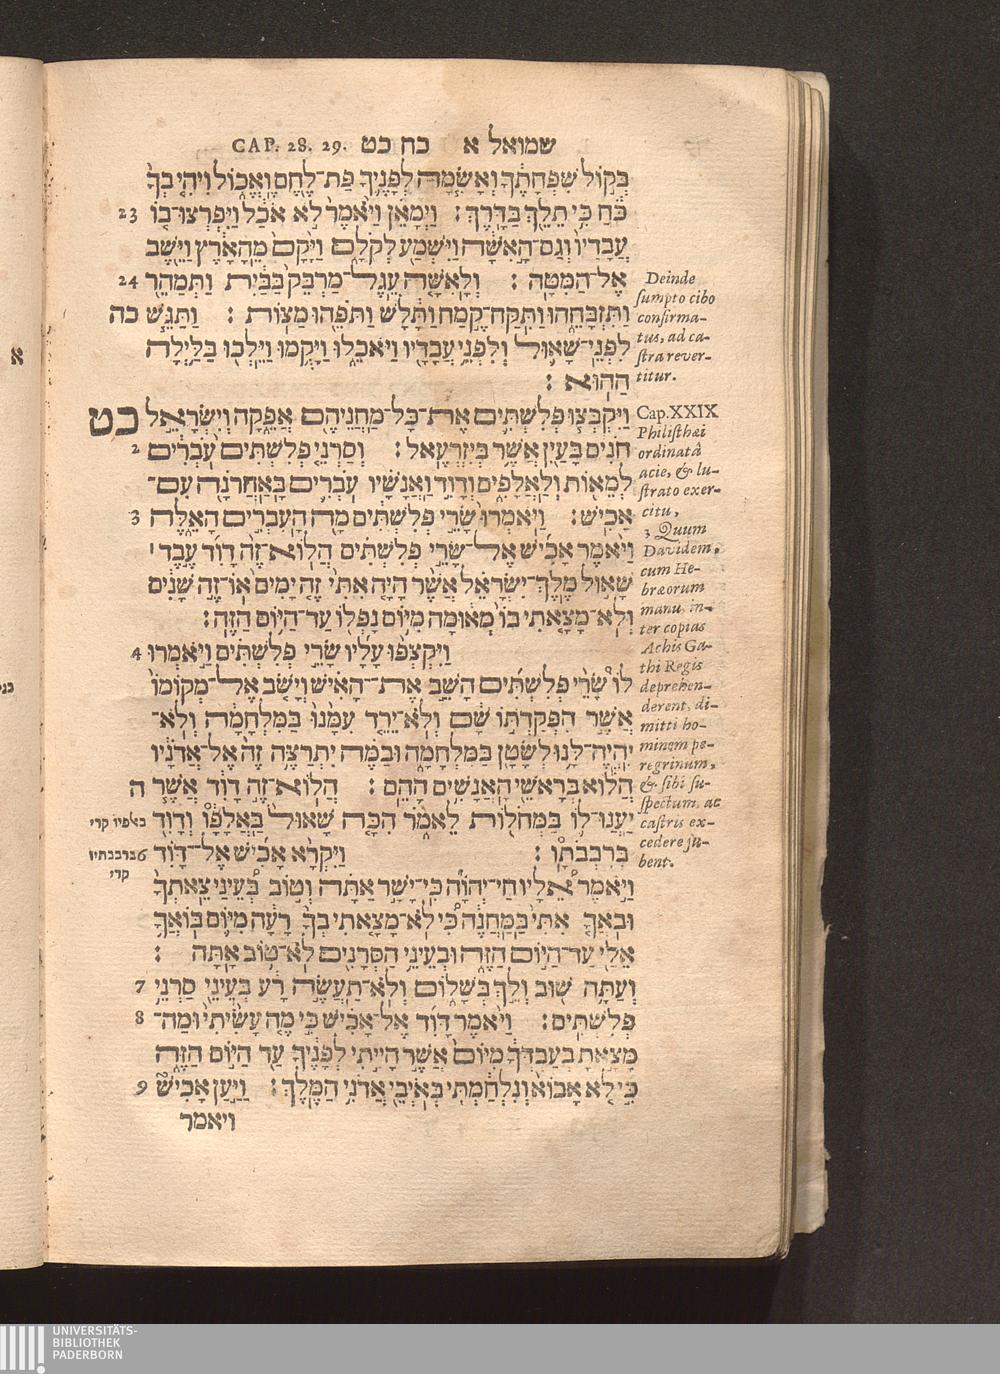 שמואל א כח כט CAP. 28. 29.
בְּקוֹל שִׁפְחָתֶךָ וְאָשִׂמָה לְפָנֶיךָ פַּת־לֶחֶם וֶאֱכוֹל וִיהִי בְךָ
כֹּחַ כִּי תֵלֵךְ בַּדָּרֶךְ׃ וַיְמָאֵן וַיֹּאמֶר לֹא אֹכַל וַיִּפְרְצוּ־בוֹ 23
עֲבָדָיו וְגַם־הָאִשָּׁה וַיִּשְׁמַע לְקֹלָם וַיָּקָם מֵהָאָרֶץ וַיֵּשֶׁב
אֶל־הַמִּטָּה׃ וְלָאִשָּׁה עֵגֶל־מַרְבֵּק בַּבַּיִת וַתְּמַהֵר 24
וַתִּזְבָּחֵהוּ וַתִּקַּח־קֶמַח וַתָּלָשׁ וַתֹּפֵהוּ מַצּוֹת׃ וַתַּגֵּשׁ כה
לִפְנֵי־שָׁאוּל וְלִפְנֵי עֲבָדָיו וַיֹּאכֵלוּ וַיָּקֻמוּ וַיֵּלְכוּ בַּלַּיְלָה
הַהוּא׃
Deinde
sumpto cibo
confirma-
tus, ad ca-
stra rever-
titur.
וַיִּקְבְּצוּ פְלִשְׁתִּים אֶת־כָּל־מַחֲנֵיהֶם אֲפֵקָה וְיִשְׂרָאֵל כט
חֹנִים בָּעַיִן אֲשֶׁר בְּיִזְרְעֶאל׃ וְסַרְנֵי פְלִשְׁתִּים עֹבְרִים 2
לְמֵאוֹת וְלַאֲלָפִים וְדָוִד וַאֲנָשָׁיו עֹבְרִים בָּאַחֲרֹנָה עִם־
אָכִישׁ׃ וַיֹּאמְרוּ שָׂרֵי פְלִשְׁתִּים מָה הָעִבְרִים הָאֵלֶּה 3
וַיֹּאמֶר אָכִישׁ אֶל־שָׂרֵי פְלִשְׁתִּים הֲלוֹא־זֶה דָוִד עֶבֶד ׀
שָׁאוּל מֶלֶךְ־יִשְׂרָאֵל אֲשֶׁר הָיָה אִתִּי זֶה יָמִים אוֹ־זֶה שָׁנִים
וְלֹא־מָצָאתִי בוֹ מְאוּמָה מִיּוֹם נָפְלוֹ עַד־הַיּוֹם הַזֶּה׃
וַיִּקְצְפוּ עָלָיו שָׂרֵי פְלִשְׁתִּים וַיֹּאמְרוּ 4
לוֹ שָׂרֵי פְלִשְׁתִּים הָשֵׁב אֶת־הָאִישׁ וְיָשֹׁב אֶל־מְקוֹמוֹ
אֲשֶׁר הִפְקַדְתּוֹ שָׁם וְלֹא־יֵרֵד עִמָּנוּ בַּמִּלְחָמָה וְלֹא־
יִהְיֶה־לָּנוּ לְשָׂטָן בַּמִּלְחָמָה וּבַמֶּה יִתְרַצֶּה זֶה אֶל־אֲדֹנָיו
הֲלוֹא בְּרָאשֵׁי הָאֲנָשִׁים הָהֵם׃ הֲלוֹא־זֶה דָוִד אֲשֶׁר ה
יַעֲנוּ־לוֹ בַּמְּחֹלוֹת לֵאמֹר הִכָּה שָׁאוּל בַּאֲלָפָו וְדָוִד באלפיו קרי
בְּרִבְבֹתָו׃ וַיִּקְרָא אָכִישׁ אֶל־דָּוִד 6 ברבבתיו
קרי
וַיֹּאמֶר אֵלָיו חַי־יְהוָה כִּי־יָשָׁר אַתָּה וְטוֹב בְּעֵינַי צֵאתְךָ
וּבֹאֲךָ אִתִּי בַּמַּחֲנֶה כִּי לֹא־מָצָאתִי בְךָ רָעָה מִיּוֹם בֹּאֲךָ
אֵלַי עַד־הַיּוֹם הַזֶּה וּבְעֵינֵי הַסְּרָנִים לֹא־טוֹב אָתָּה׃
וְעַתָּה שׁוּב וְלֵךְ בְּשָׁלוֹם וְלֹא־תַעֲשֶׂה רָע בְּעֵינֵי סַרְנֵי 7
פְלִשְׁתִּים׃ וַיֹּאמֶר דָּוִד אֶל־אָכִישׁ כִּי מֶה עָשִׂיתִי וּמַה־ 8
מָּצָאתָ בְעַבְדְּךָ מִיּוֹם אֲשֶׁר הָיִיתִי לְפָנֶיךָ עַד הַיּוֹם הַזֶּה
כִּי לֹא אָבוֹא וְנִלְחַמְתִּי בְּאֹיְבֵי אֲדֹנִי הַמֶּלֶךְ׃ וַיַּעַן אָכִישׁ 9
ויאמר
Cap. XXIX
Philisthæi
ordinatâ
acie, & lu-
strato exer-
citu,
3 Quum
Davidem,
cum He-
bræorum
manu, in-
ter copias
Achis Ga-
thi Regis
deprehen-
derent, di-
mitti ho-
minem pe-
regrinum,
& sibi su-
spectum, ac
castris ex-
cedere ju-
bent.
א
UNIVERSITÄTS-
BIBLIOTHEK
PADERBORN